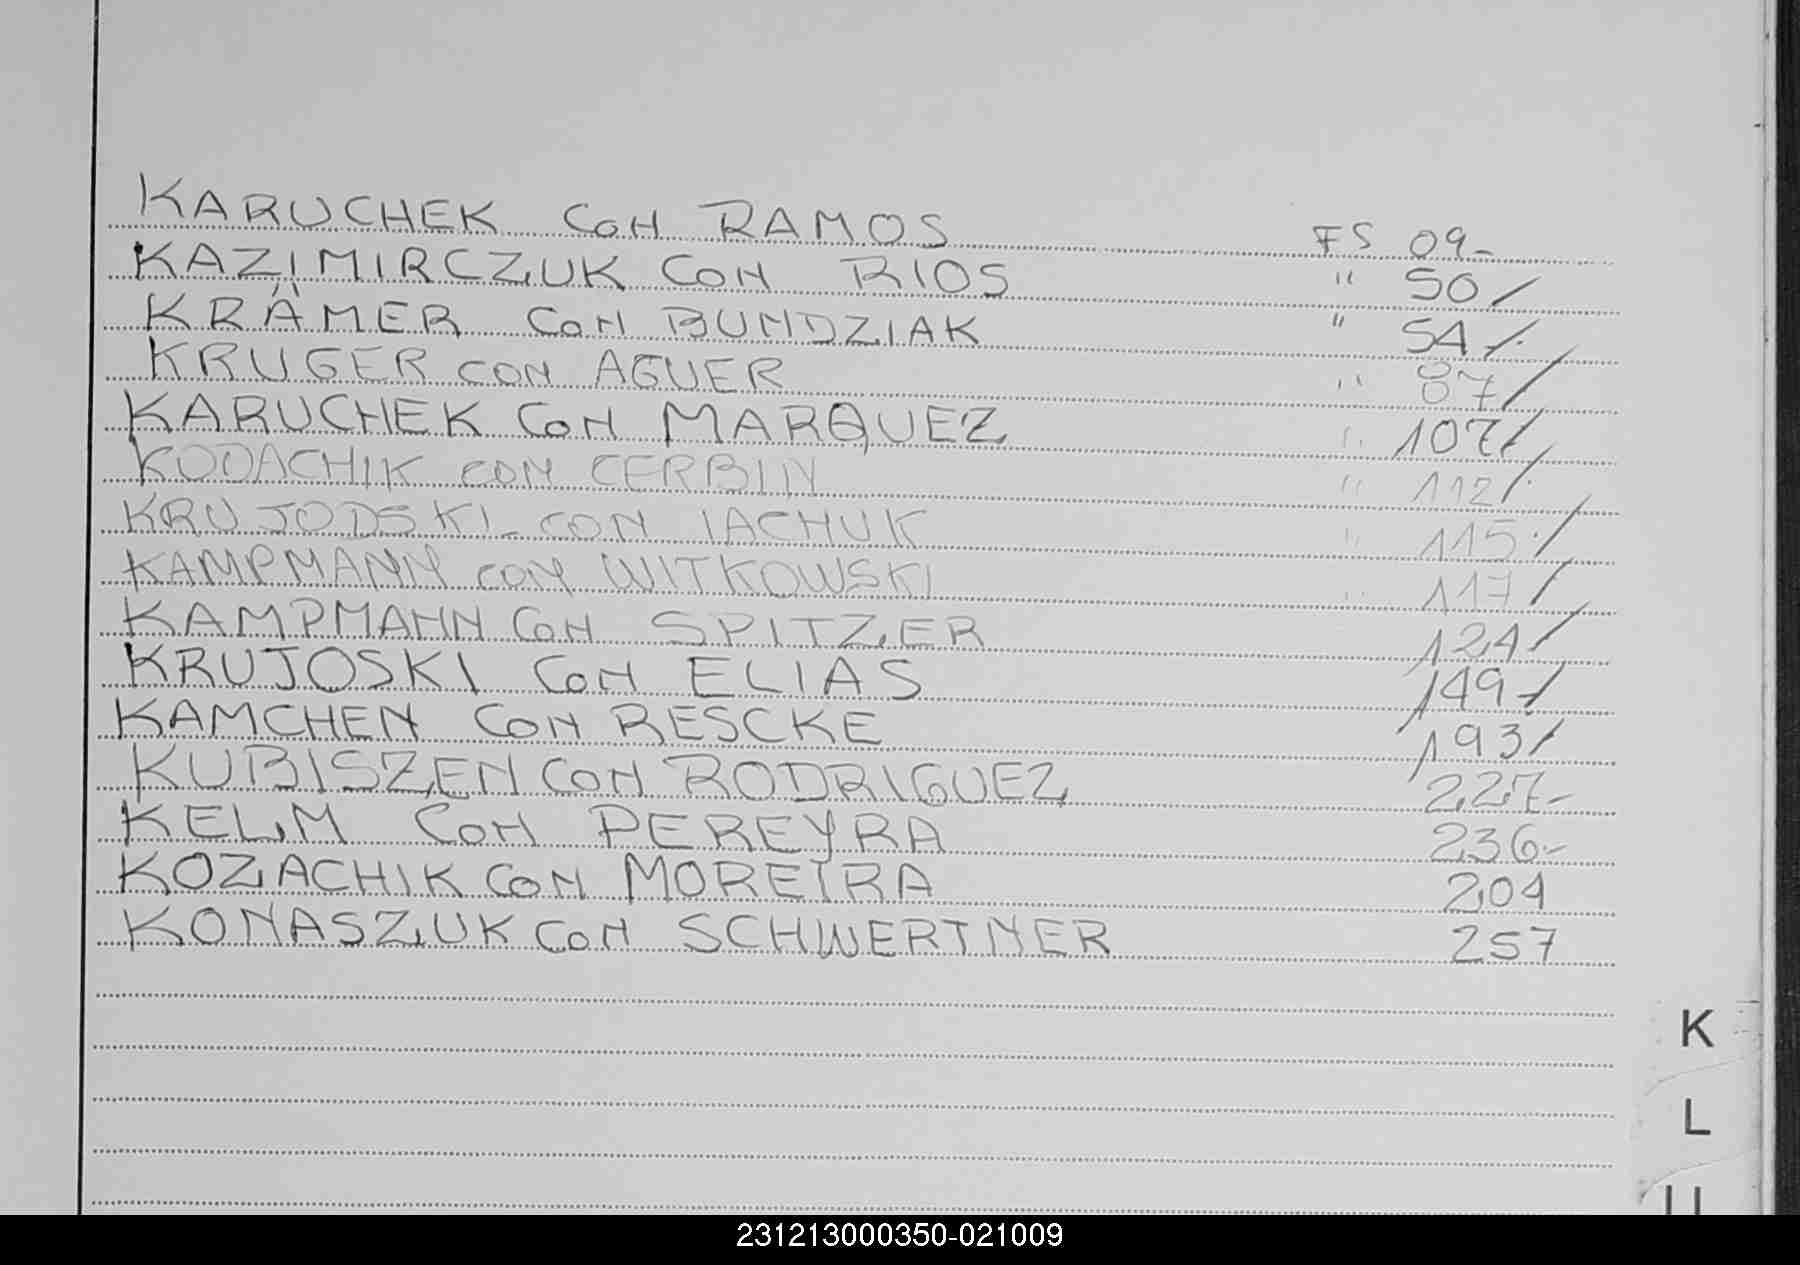 KARUCHEK CON RAMOS FS 09-
KAZIMIRCZUK CON RIOS " 50/
KRÄMER CON BUNDZIAK " 54/
KRUGER CON AGUER " 87/
KARUCHEK CON MARQUEZ " 107/
KODACHIK CON CERBIN " 112/
KRUJODSKI CON IACHUK " 115/
KAMPMANN CON WITKOWSKI " 117/
KAMPMANN CON SPITZER 124/
KRUJOSKI CON ELIAS 149/
KAMCHEN CON RESCKE 193/
KUBISZEN CON RODRIGUEZ 227-
KELM CON PEREYRA 236-
KOZACHIK CON MOREIRA 204
KONASZUK CON SCHWERTNER 257
K
L
231213000350-021009